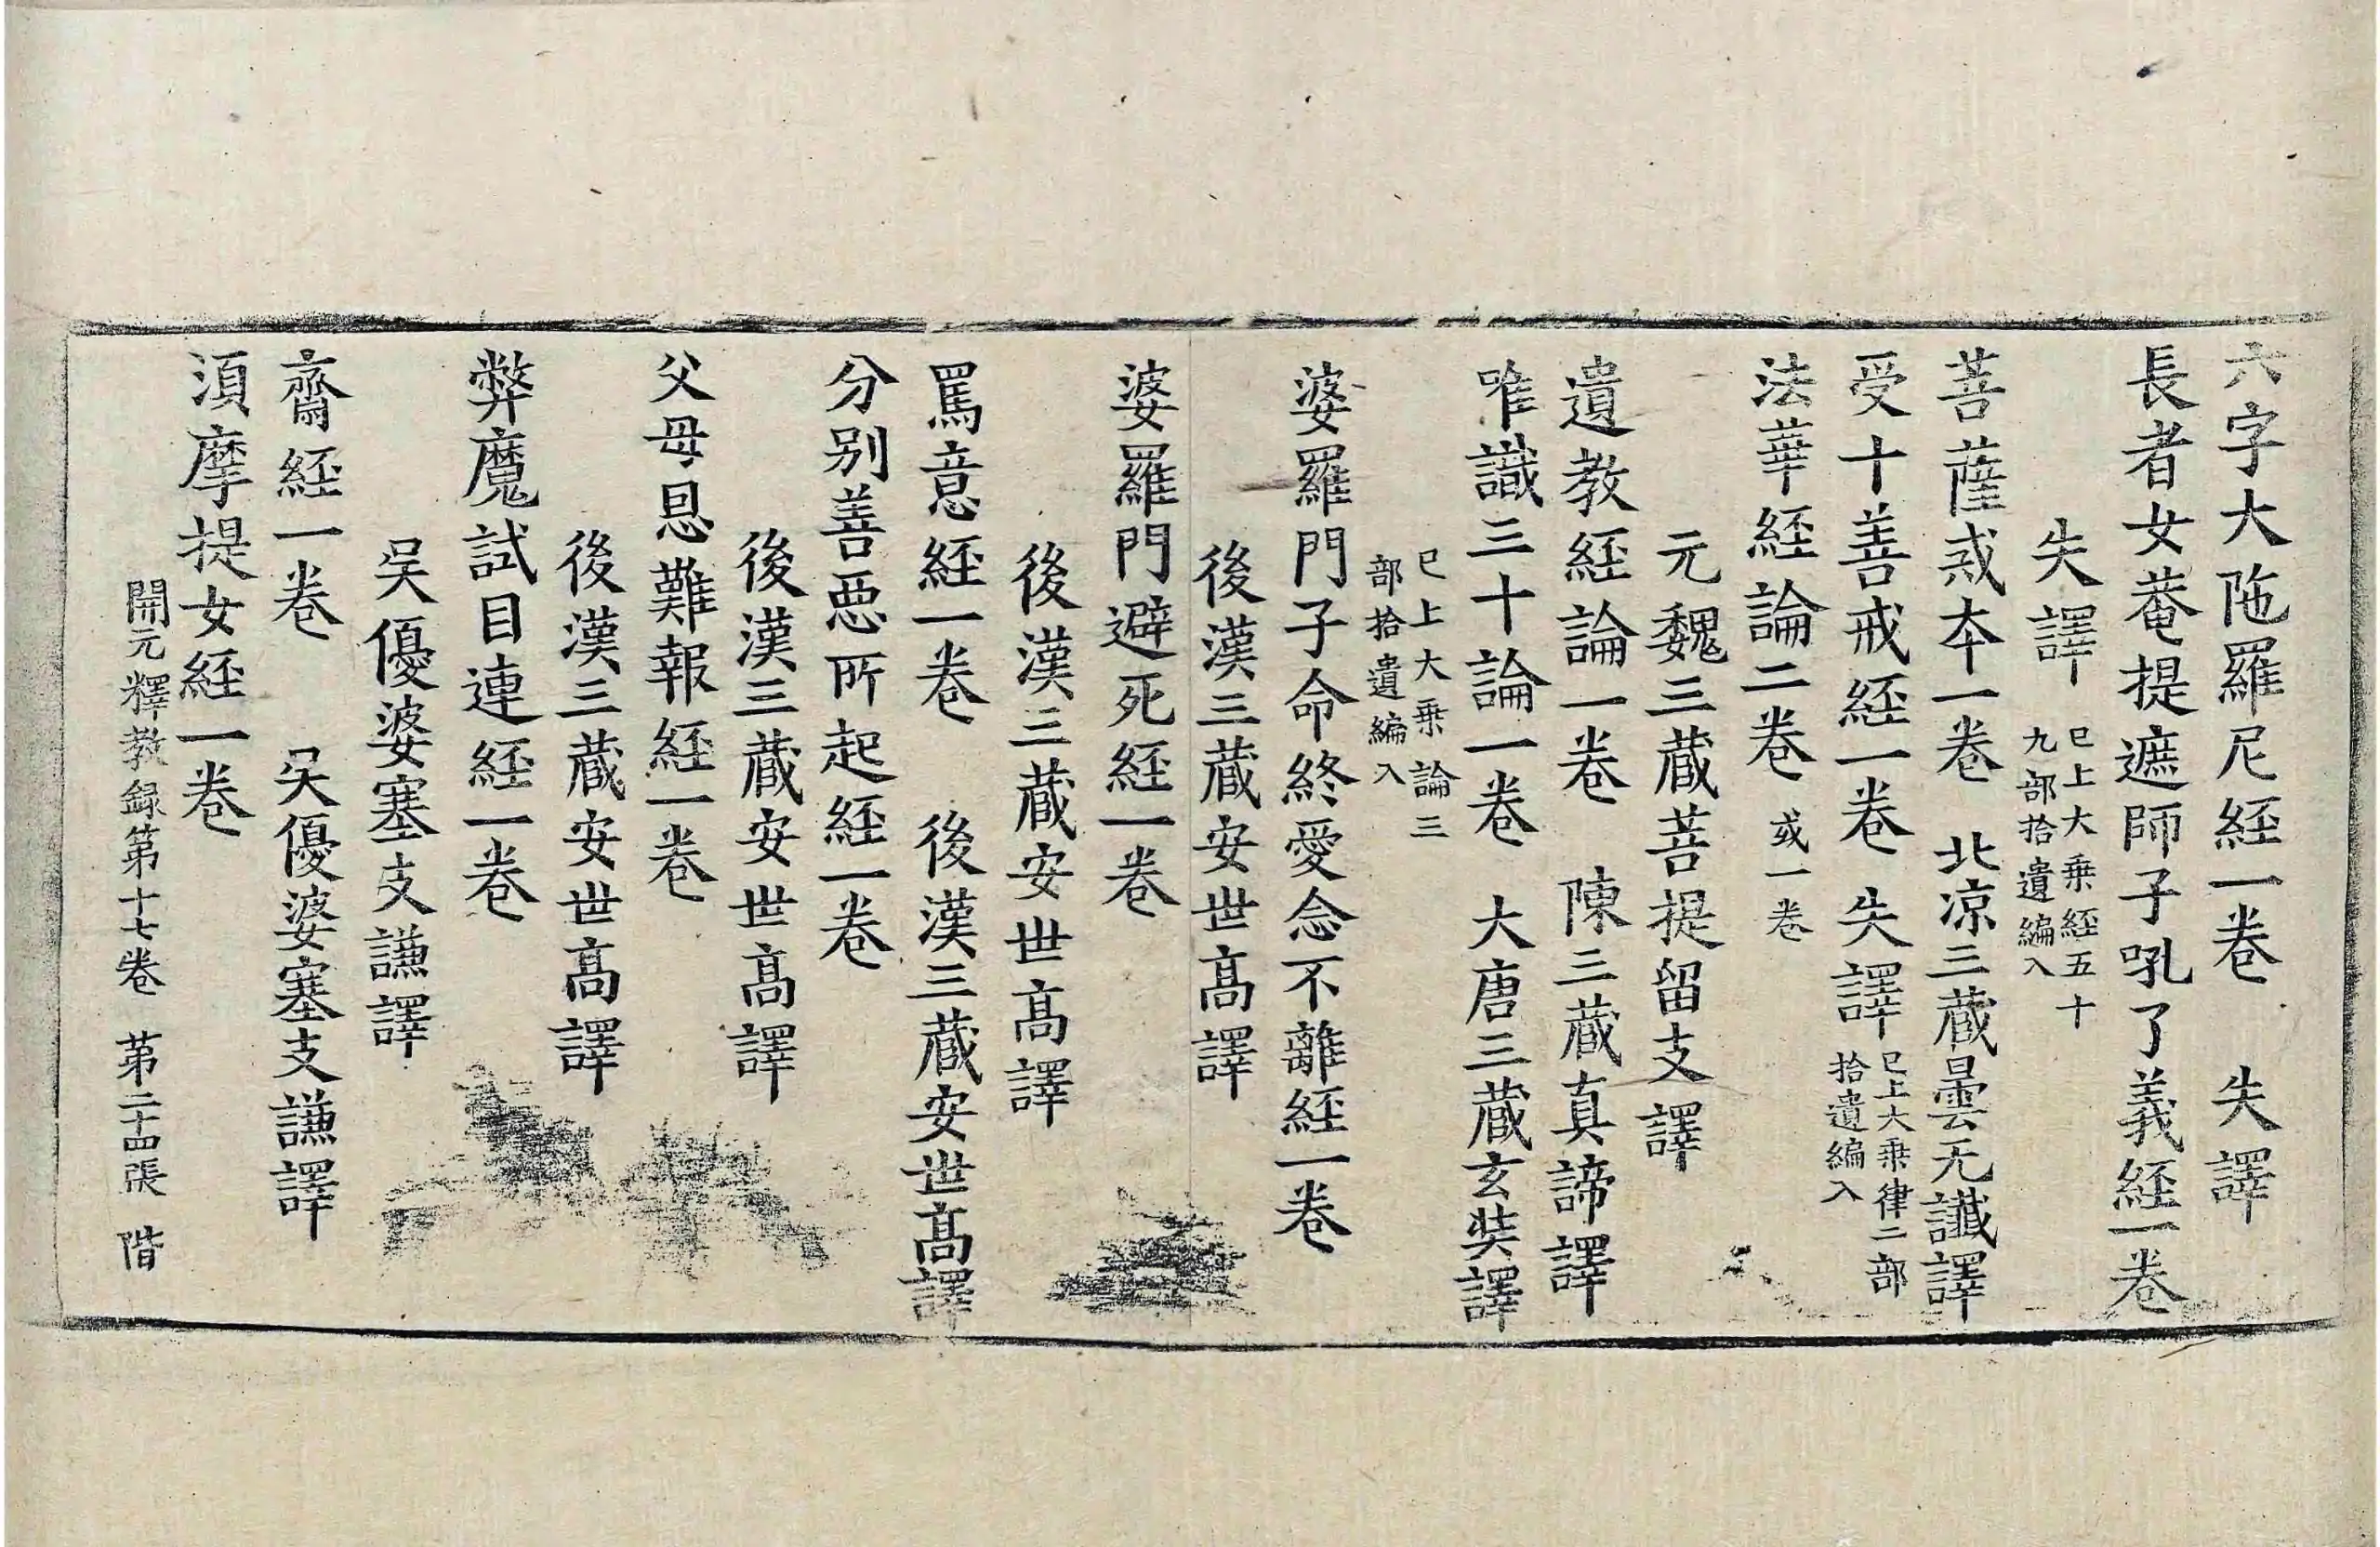 六字大陁羅尼経一卷　失譯
長者女菴提遮師子吼了義経一卷
失譯　已上大乗経五十
九部拾遺編入
菩薩戒夲一卷　北涼三蔵曇无讖譯
受十善戒経一卷　失譯　已上大乗律二部
拾遺編入
法華経論二卷　或一卷
元魏三蔵菩提留支譯
遺教経論一卷　陳三蔵真諦譯
唯識三十論一卷　大唐三蔵玄奘譯
已上大乗論三
部拾遺編入
婆羅門子命終愛念不離経一卷
後漢三蔵安世髙譯
婆羅門避死経一卷
後漢三蔵安世髙譯
罵意経一卷　後漢三蔵安世髙譯
分别善惡所起経一卷
後漢三蔵安世髙譯
父母恩難報経一卷
後漢三蔵安世髙譯
弊魔試目連経一卷
吴優婆塞支謙譯
齋経一卷　吴優婆塞支謙譯
湏摩提女経一卷
開元釋教録第十七卷　第二十四張　階